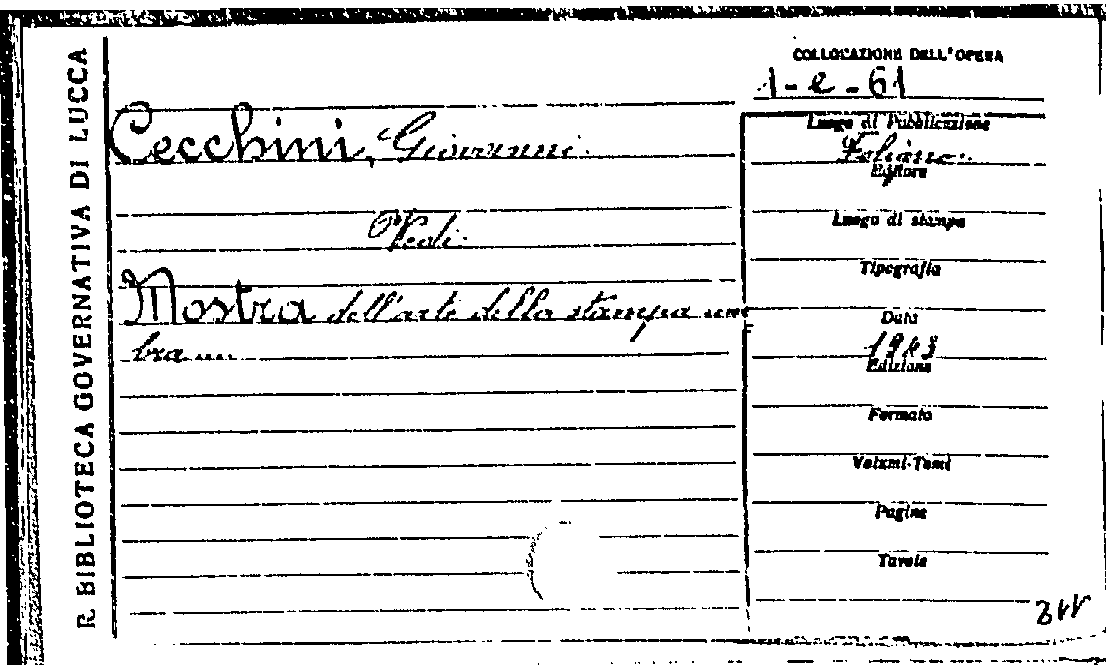 R. BIBLIOTECA GOVERNATIVA DI LUCCA
COLLOCAZIONE DELL'OPERA
1-e-61
Cecchini, Giovanni.
Vedi.
Mostra dell'arte della stampa um
bra ...
Luogo di Pubblicazione
Foligno.
Editore
Luogo di stampa
Tipografia
Data
1943
Edizione
Formato
Volumi-Tomi
Pagine
Tavole